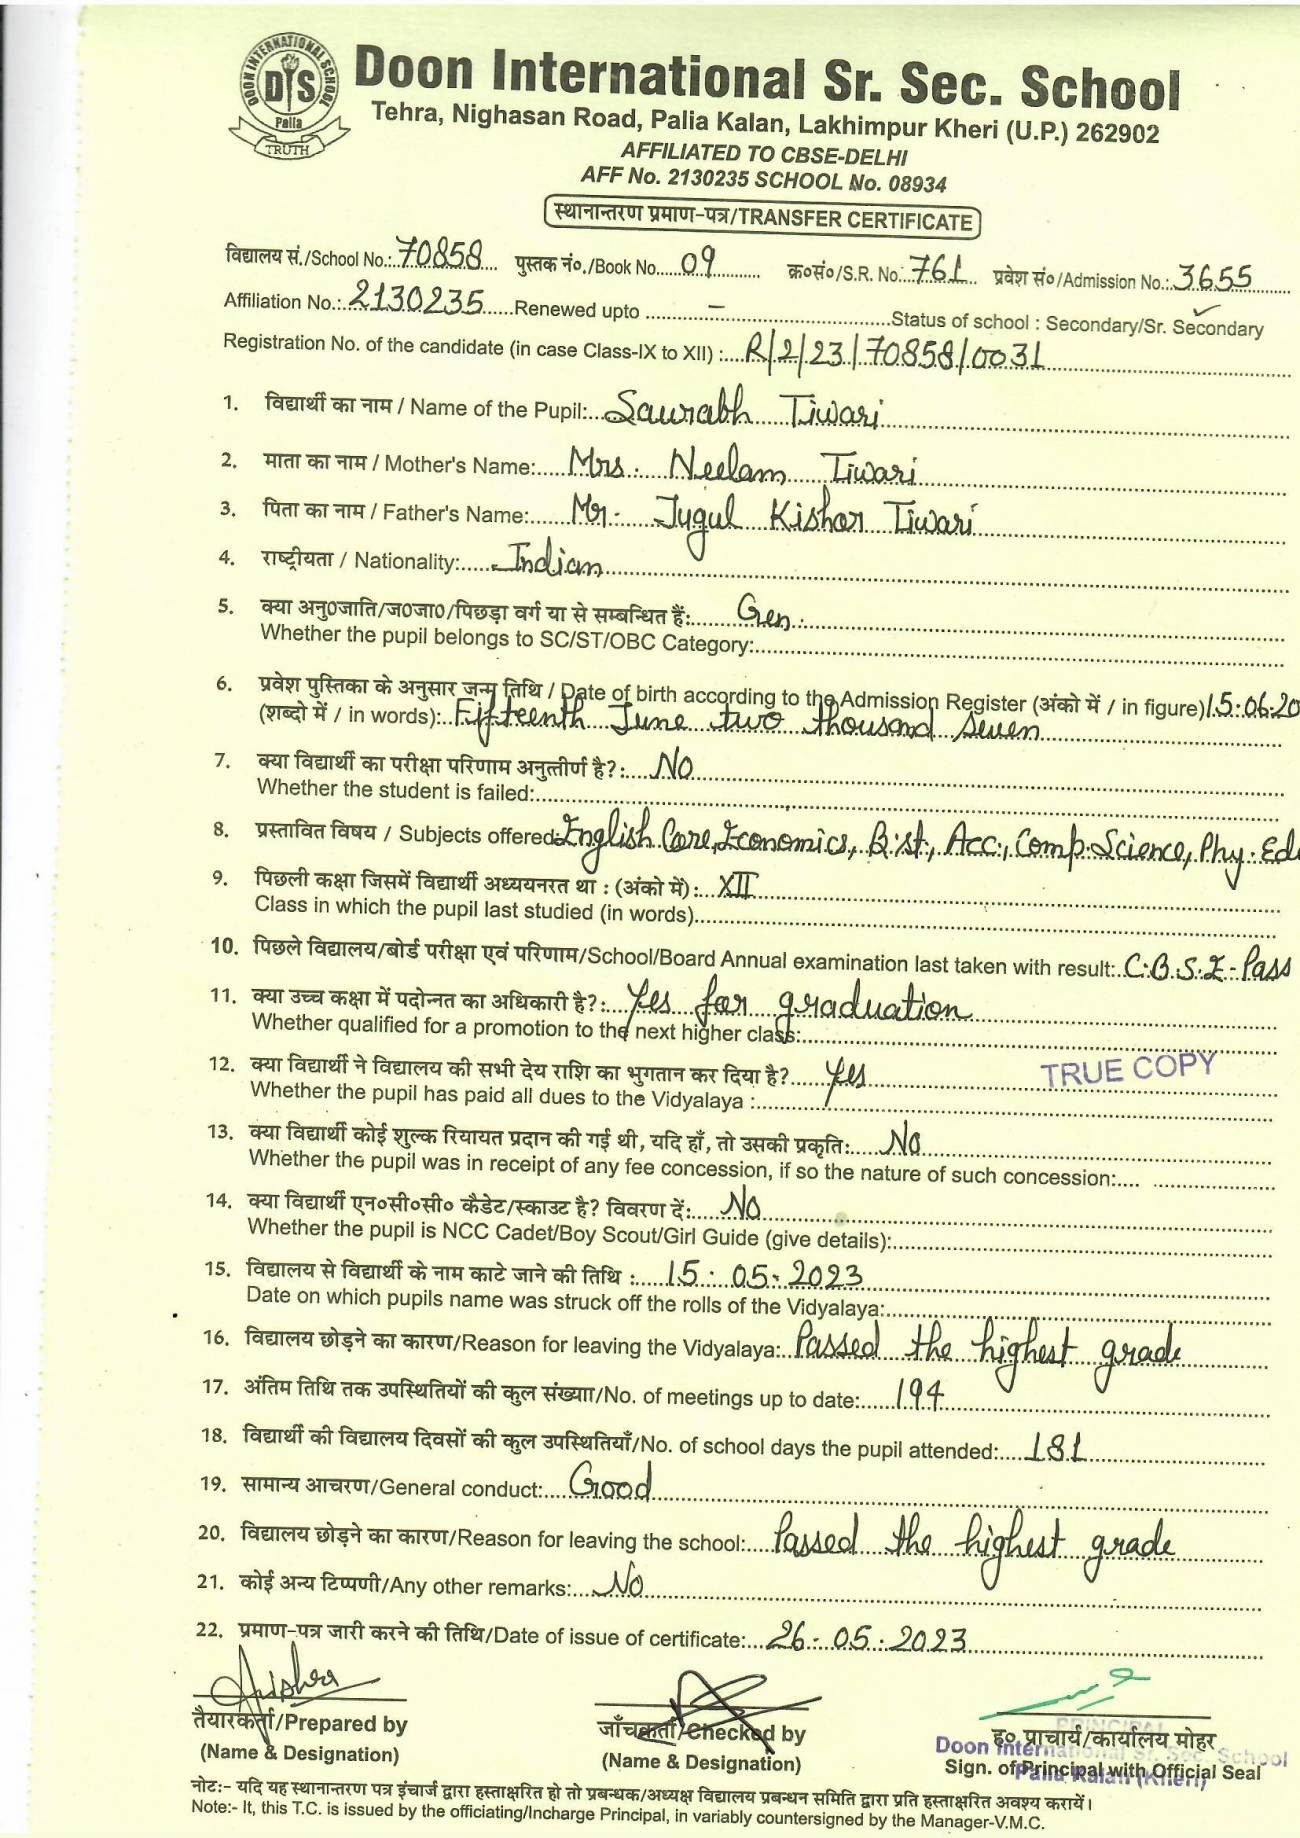 DOON INTERNATIONAL SCHOOL
DIS
Palia
TRUTH
Doon International Sr. Sec. School
Tehra, Nighasan Road, Palia Kalan, Lakhimpur Kheri (U.P.) 262902
AFFILIATED TO CBSE-DELHI
AFF No. 2130235 SCHOOL No. 08934
स्थानान्तरण प्रमाण-पत्र/TRANSFER CERTIFICATE
विद्यालय सं./School No.: 70858 पुस्तक नं०./Book No. 09 क्र०सं०/S.R. No. 761 प्रवेश सं०/Admission No.: 3655
Affiliation No.: 2130235 Renewed upto – Status of school : Secondary/Sr. Secondary
Registration No. of the candidate (in case Class-IX to XII) : R/2/23/70858/0031
1. विद्यार्थी का नाम / Name of the Pupil: Saurabh Tiwari
2. माता का नाम / Mother's Name: Mrs. Neelam Tiwari
3. पिता का नाम / Father's Name: Mr. Jugul Kishor Tiwari
4. राष्ट्रीयता / Nationality: Indian
5. क्या अनु0जाति/ज0जा0/पिछड़ा वर्ग या से सम्बन्धित हैं: Gen.
Whether the pupil belongs to SC/ST/OBC Category:
6. प्रवेश पुस्तिका के अनुसार जन्म तिथि / Date of birth according to the Admission Register (अंको में / in figure) 15.06.20
(शब्दो में / in words): Fifteenth June two thousand seven
7. क्या विद्यार्थी का परीक्षा परिणाम अनुत्तीर्ण है?: No
Whether the student is failed:
8. प्रस्तावित विषय / Subjects offered: English Core, Economics, B.st, Acc., Comp. Science, Phy. Edu
9. पिछली कक्षा जिसमें विद्यार्थी अध्ययनरत था : (अंको में): XII
Class in which the pupil last studied (in words)
10. पिछले विद्यालय/बोर्ड परीक्षा एवं परिणाम/School/Board Annual examination last taken with result: C.B.S.E - Pass
11. क्या उच्च कक्षा में पदोन्नत का अधिकारी है?: Yes for graduation
Whether qualified for a promotion to the next higher class:
12. क्या विद्यार्थी ने विद्यालय की सभी देय राशि का भुगतान कर दिया है? Yes
TRUE COPY
Whether the pupil has paid all dues to the Vidyalaya :
13. क्या विद्यार्थी कोई शुल्क रियायत प्रदान की गई थी, यदि हाँ, तो उसकी प्रकृति: No
Whether the pupil was in receipt of any fee concession, if so the nature of such concession:
14. क्या विद्यार्थी एन०सी०सी० कैडेट/स्काउट है? विवरण दें: No
Whether the pupil is NCC Cadet/Boy Scout/Girl Guide (give details):
15. विद्यालय से विद्यार्थी के नाम काटे जाने की तिथि : 15.05.2023
Date on which pupils name was struck off the rolls of the Vidyalaya:
16. विद्यालय छोड़ने का कारण/Reason for leaving the Vidyalaya: Passed the highest grade
17. अंतिम तिथि तक उपस्थितियों की कुल संख्या/No. of meetings up to date: 194
18. विद्यार्थी की विद्यालय दिवसों की कुल उपस्थितियाँ/No. of school days the pupil attended: 181
19. सामान्य आचरण/General conduct: Good
20. विद्यालय छोड़ने का कारण/Reason for leaving the school: Passed the highest grade
21. कोई अन्य टिप्पणी/Any other remarks: No
22. प्रमाण-पत्र जारी करने की तिथि/Date of issue of certificate: 26.05.2023
तैयारकर्ता/Prepared by
(Name & Designation)
जाँचकर्ता/Checked by
(Name & Designation)
PRINCIPAL
ह० प्राचार्य/कार्यालय मोहर
Doon International Sr. Sec. School
Sign. of Principal with Official Seal
Palia Kalan (Kheri)
नोट:- यदि यह स्थानान्तरण पत्र इंचार्ज द्वारा हस्ताक्षरित हो तो प्रबन्धक/अध्यक्ष विद्यालय प्रबन्धन समिति द्वारा प्रति हस्ताक्षरित अवश्य करायें।
Note:- It, this T.C. is issued by the officiating/Incharge Principal, in variably countersigned by the Manager-V.M.C.